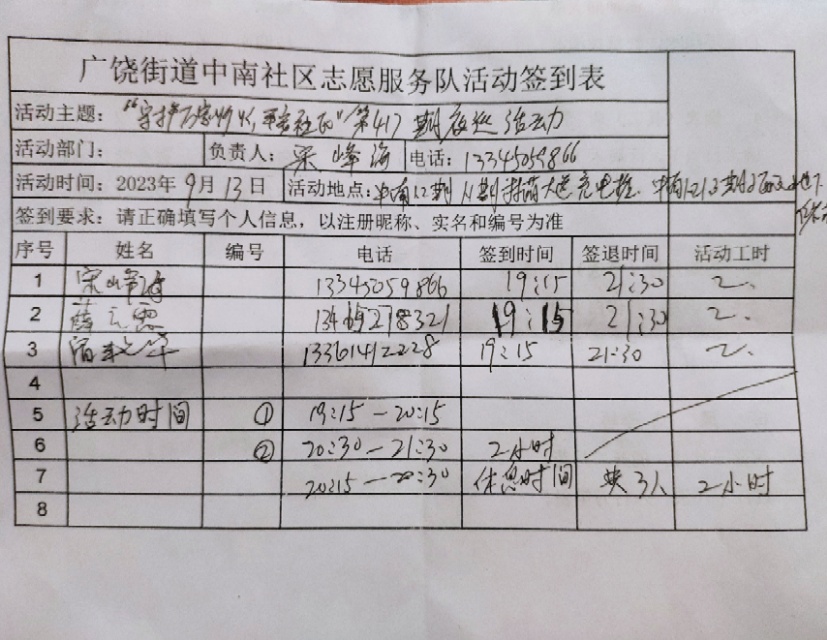 广饶街道中南社区志愿服务队活动签到表
活动主题：“守护万家灯火，平安社区”第417期夜巡活动
活动部门： 负责人：宋峰海 电话：13345059866
活动时间：2023年9月13日 活动地点：中南1.2期 充电桩
签到要求：请正确填写个人信息，以注册昵称、实名和编号为准
序号 姓名 编号 电话 签到时间 签退时间 活动工时
1 宋峰海 13345059866 19:15 21:30 2.
2 薛 19:15 21:30 2.
3 13361412228 19:15 21:30 2.
4
5 活动时间 ① 19:15—20:15
6 ② 20:30—21:30 2小时
7 20:15—20:30 休息时间 共3人 2小时
8